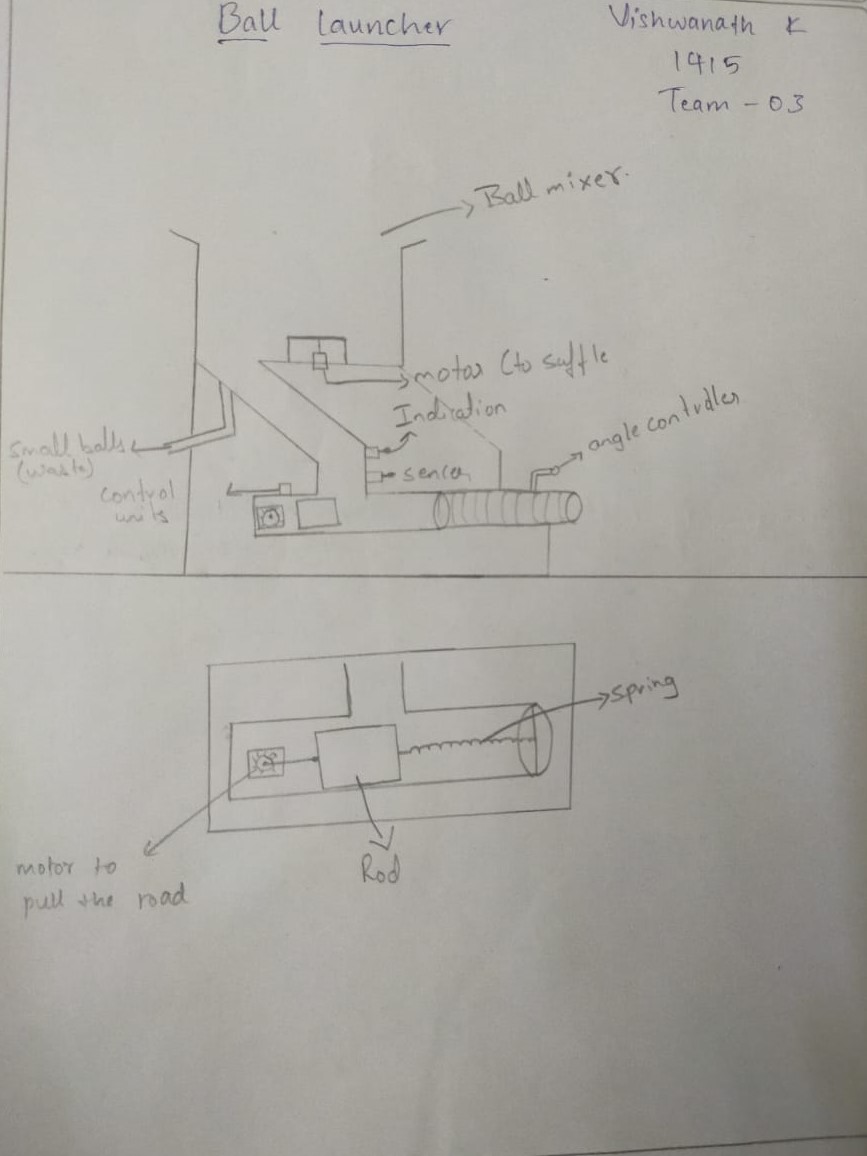 Ball Launcher
Vishwanath K
1415
Team - 03
Ball mixer.
motor (to suffle
Indication
angle controller
small balls
(waste)
sencer
control
units
spring
motor to
pull the road
Rod